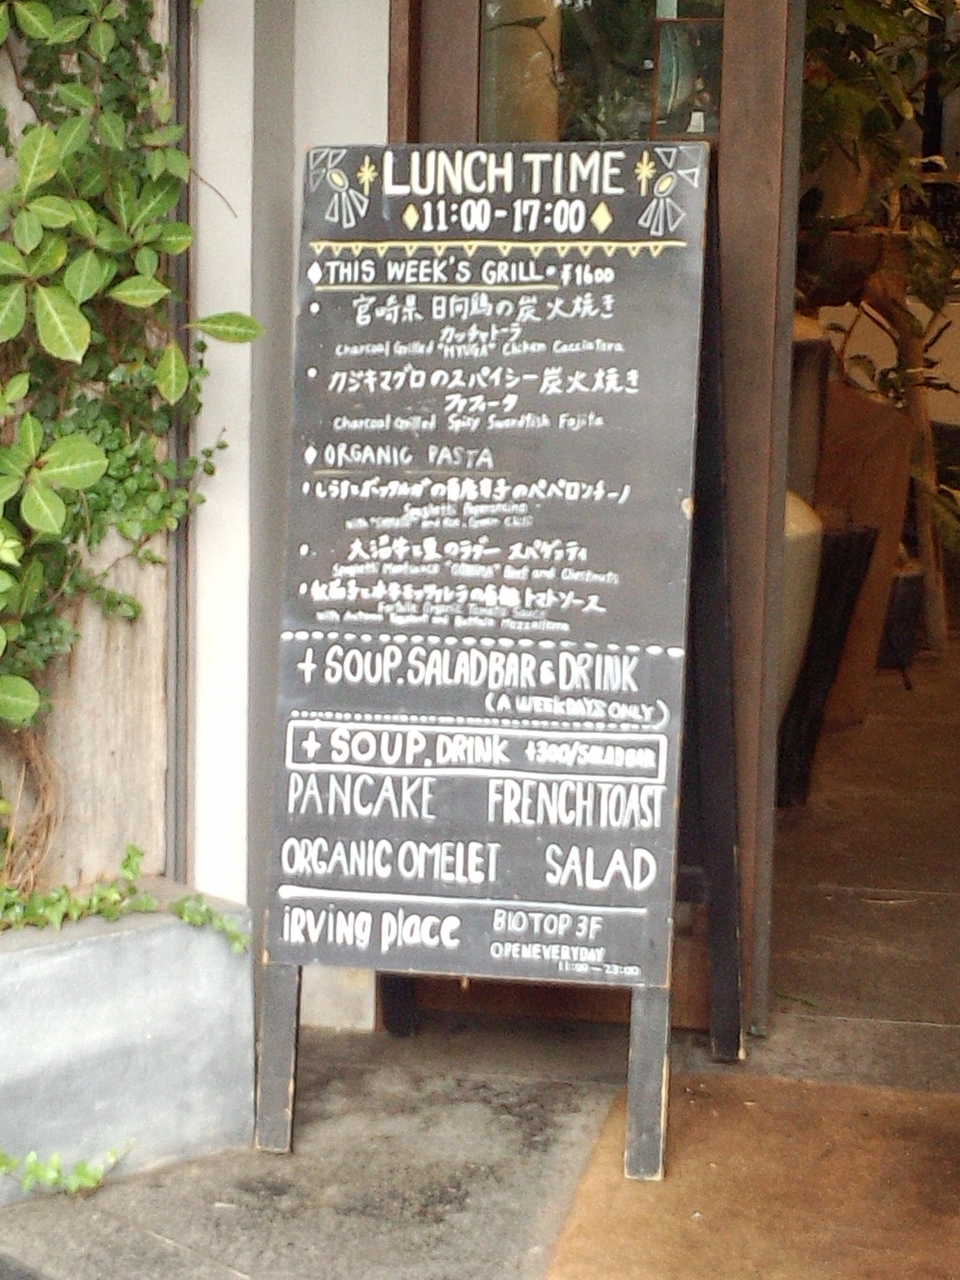 LUNCH TIME
11:00-17:00
THIS WEEK'S GRILL ¥1600
宮崎県 日向鶏の炭火焼き
カッチャトーラ
Charcoal Grilled "HYUGA" Chicken Cacciatora
カジキマグロのスパイシー炭火焼き
ファフィータ
Charcoal Grilled Spicy Swordfish Fajita
ORGANIC PASTA
のペペロンチーノ
Spaghetti Peperoncino
with and Green Chili
のラグー スパゲッティ
Spaghetti Beef and Chestnuts
トマトソース
Organic Tomato Sauce
with Autumn Eggplant and Buffalo Mozzarella
+ SOUP.SALADBAR & DRINK
(A WEEKDAYS ONLY)
+ SOUP.DRINK +300/SALADBAR
PANCAKE FRENCH TOAST
ORGANIC OMELET SALAD
iRVing place BIOTOP 3F
OPENEVERYDAY
11:00-23:00